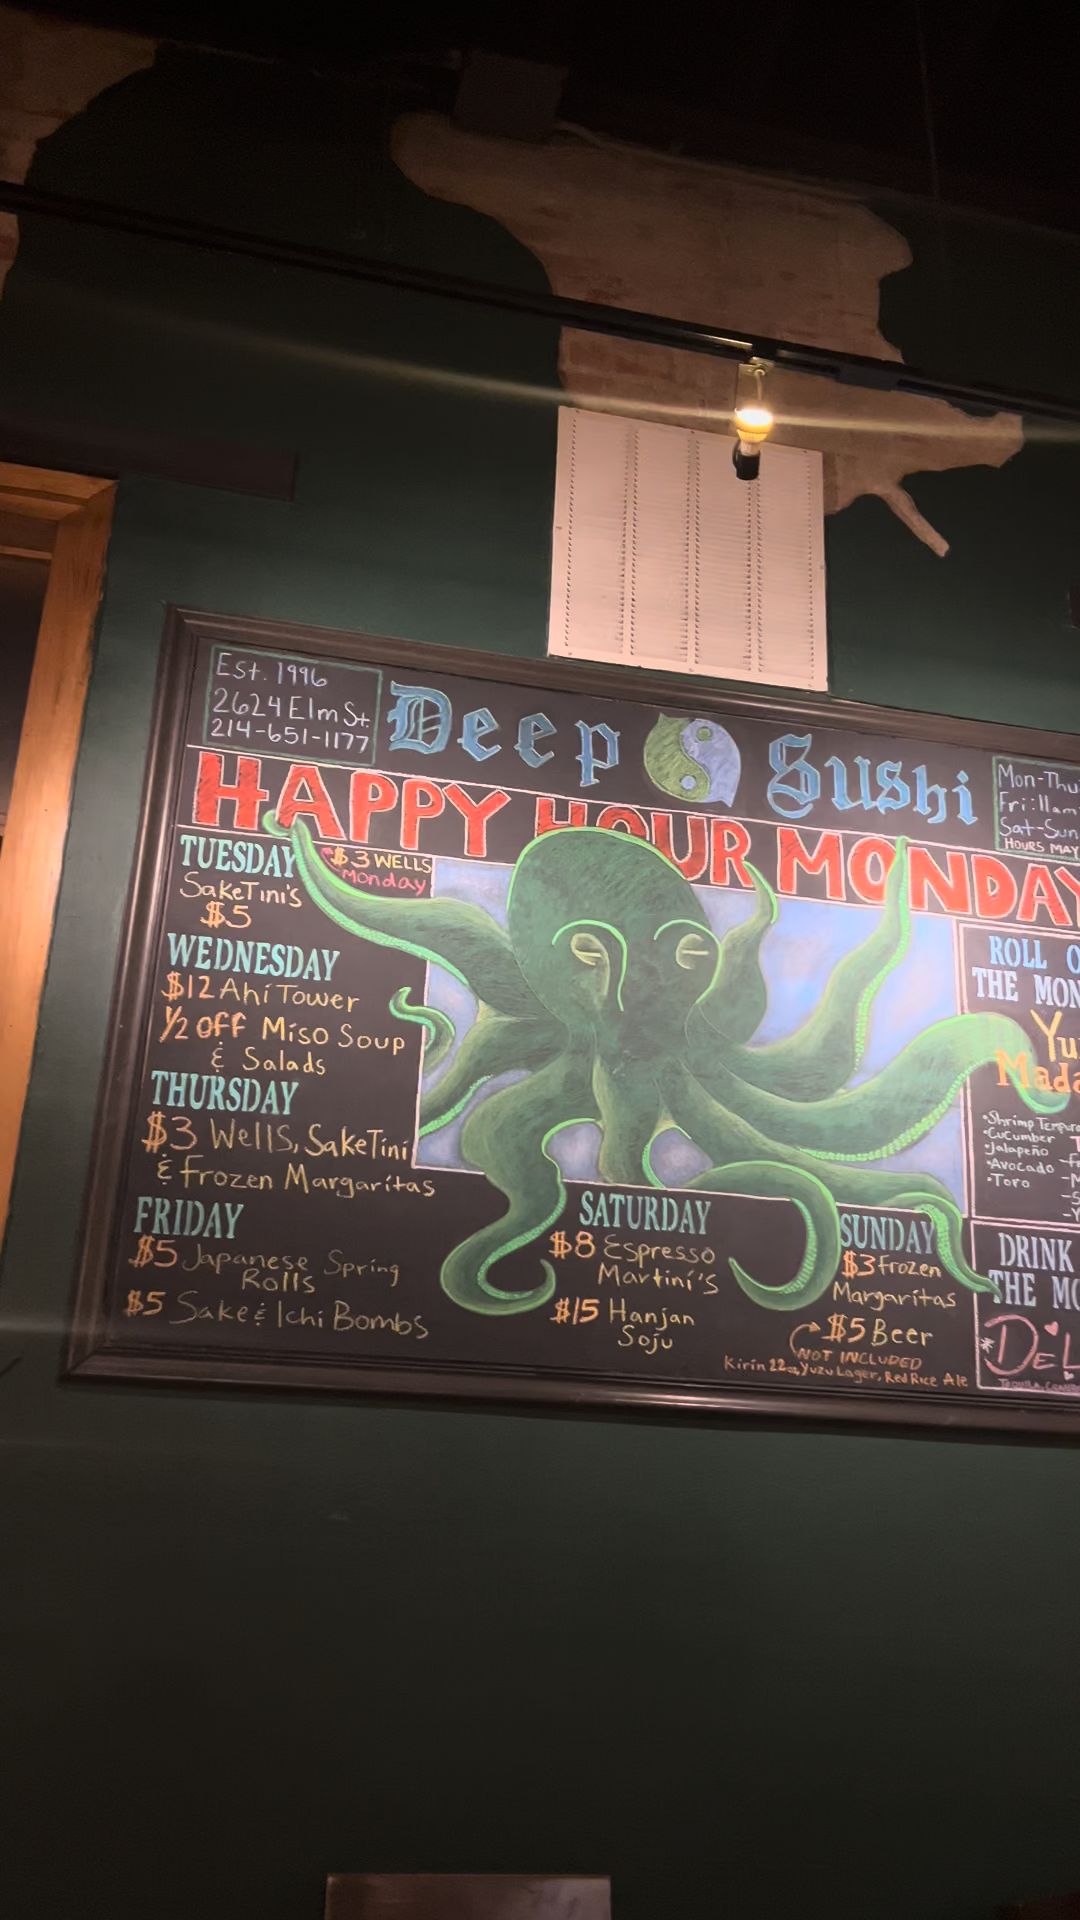 Est. 1996
2624 Elm St.
214-651-1177
Deep Sushi
Mon-Thu
Fri:11am
Sat-Sun
HOURS MAY
HAPPY HOUR MONDAY
$3 WELLS
Monday
TUESDAY
SakeTini's
$5
WEDNESDAY
$12 Ahi Tower
1/2 OFF Miso Soup
& Salads
THURSDAY
$3 Wells, SakeTini
& Frozen Margaritas
FRIDAY
$5 Japanese Spring
Rolls
$5 Sake & Ichi Bombs
SATURDAY
$8 Espresso
Martini's
$15 Hanjan
Soju
SUNDAY
$3 Frozen
Margaritas
$5 Beer
NOT INCLUDED
Kirin 22oz, Yuzu Lager, Red Rice Ale
ROLL
THE MON
Yu
Mada
•Shrimp Tempura
•Cucumber
•Jalapeño
•Avocado
•Toro
DRINK
THE MO
*DeL